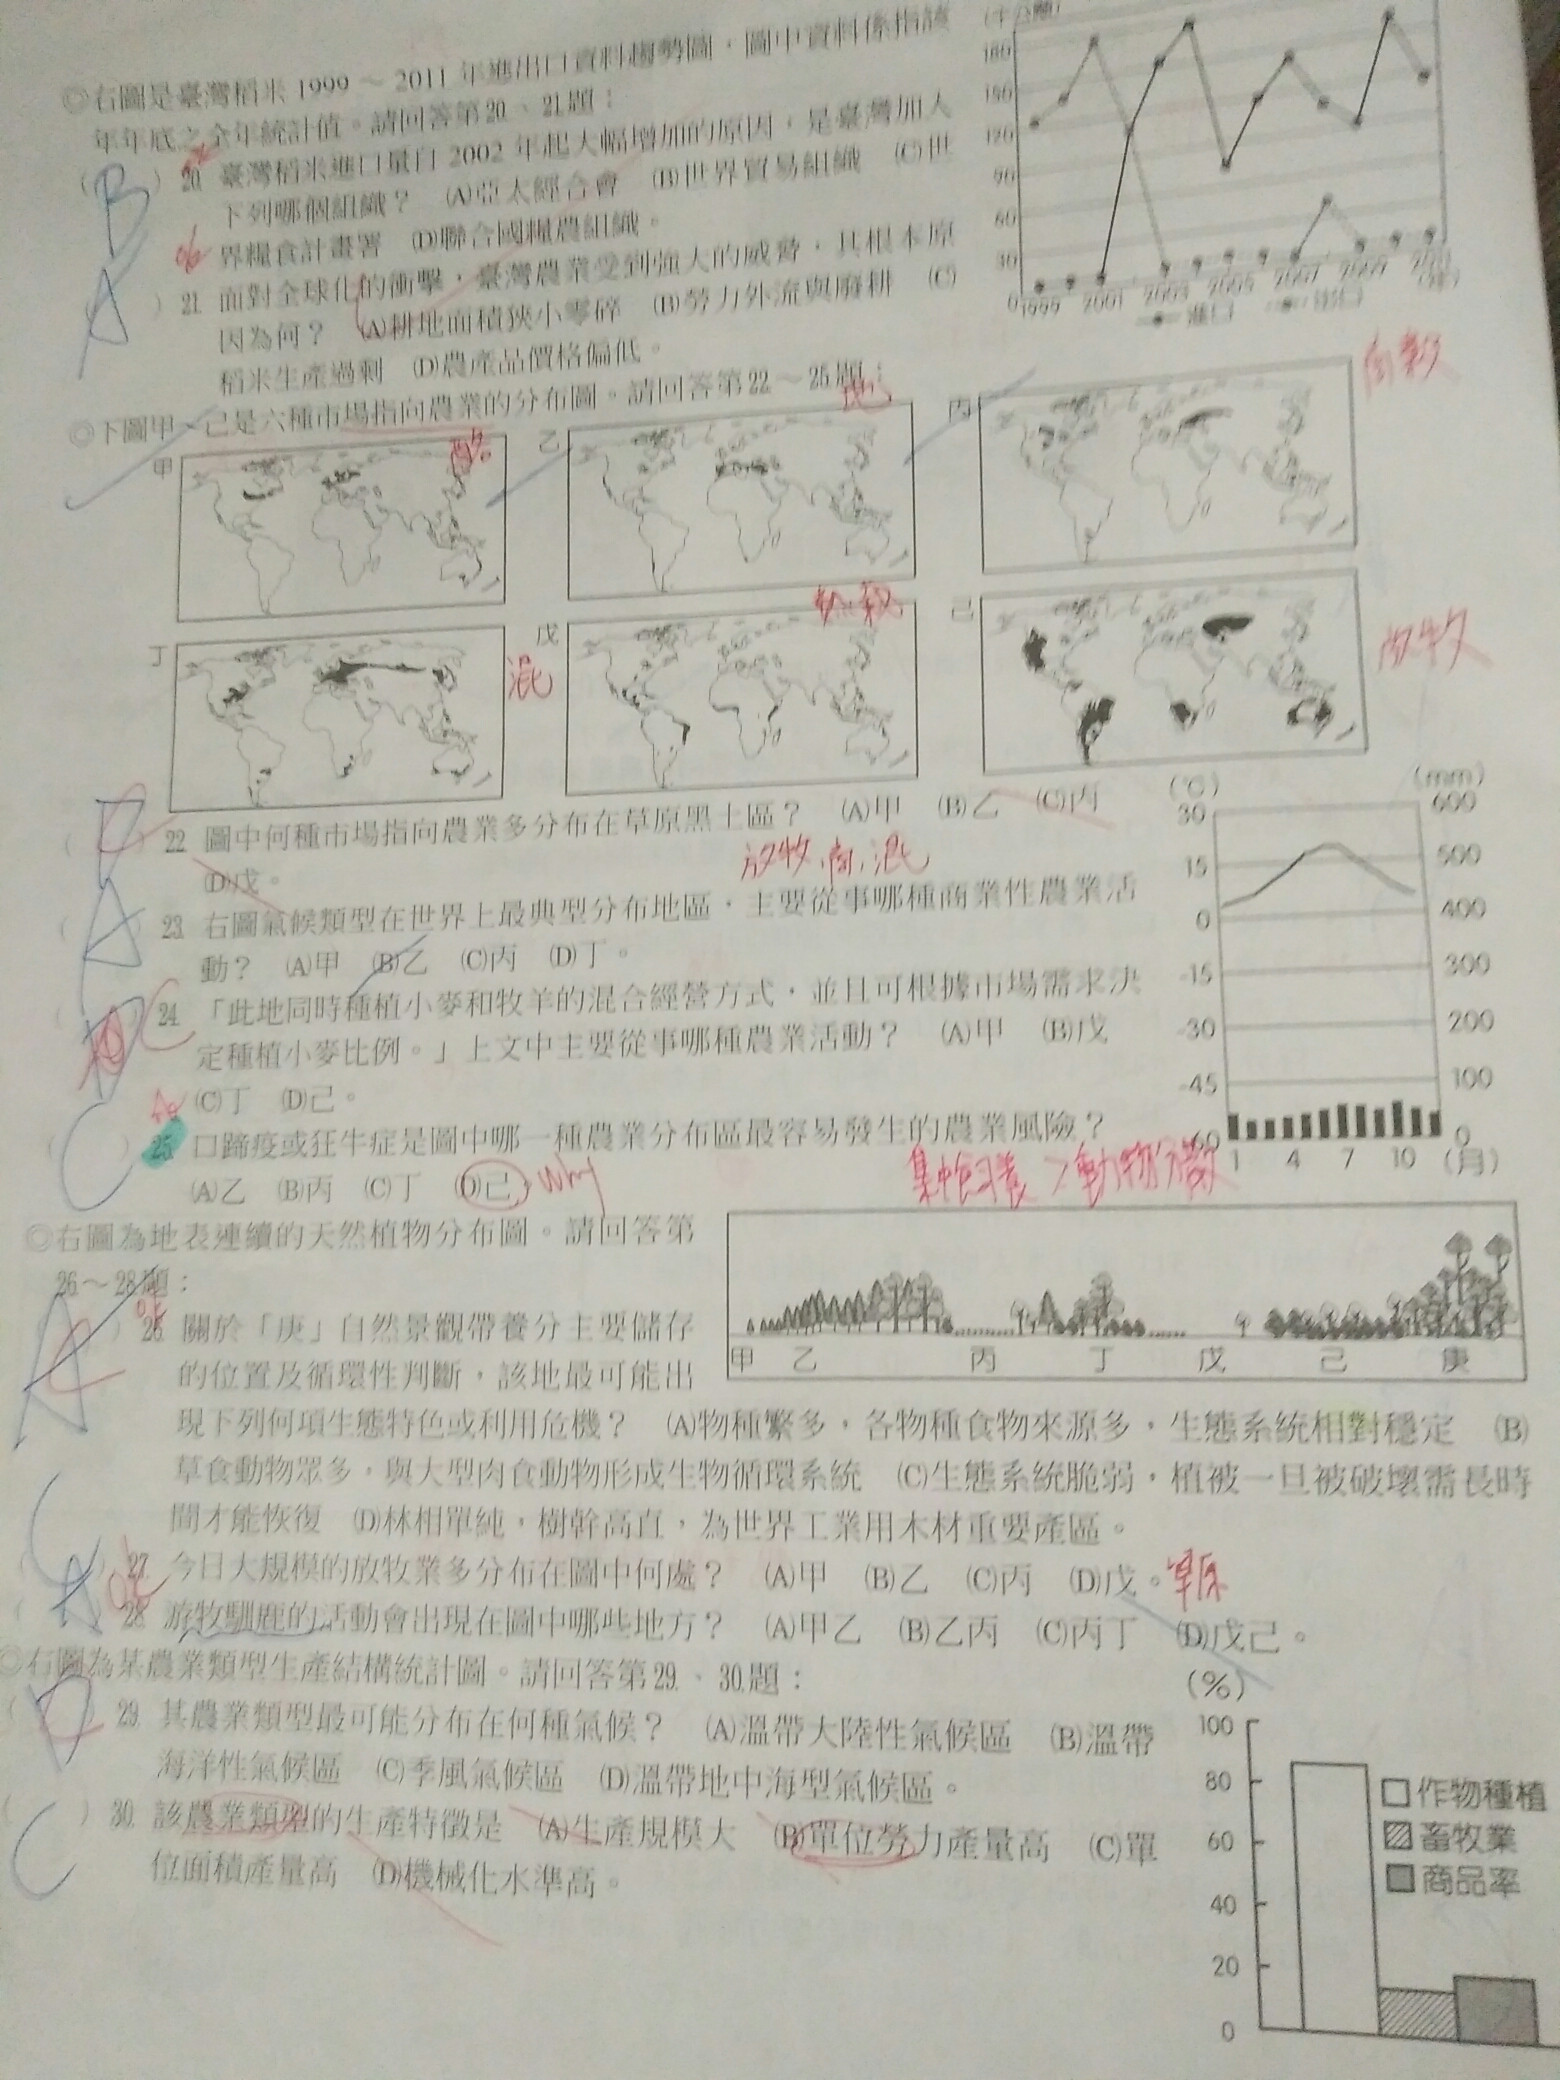 ◎右圖是臺灣稻米 1999 ～ 2011 年進出口資料趨勢圖，圖中資料係指該
年年底之全年統計值。請回答第20、21題：
B 20. 臺灣稻米進口量自 2002 年起大幅增加的原因，是臺灣加入
下列哪個組織？ (A)亞太經合會 (B)世界貿易組織 (C)世
界糧食計畫署 (D)聯合國糧農組織。
A 21. 面對全球化的衝擊，臺灣農業受到強大的威脅，其根本原
因為何？ (A)耕地面積狹小零碎 (B)勞力外流與廢耕 (C)
稻米生產過剩 (D)農產品價格偏低。
180
150
120
90
60
30
0
1999 2001 2003 2005 2007 2009 2011
進口 出口
◎下圖甲～己是六種市場指向農業的分布圖。請回答第22～25題：
甲 酪
乙 地
丙 商穀
丁 混
戊
己 放牧
22. 圖中何種市場指向農業多分布在草原黑土區？ (A)甲 (B)乙 (C)丙
(D)戊。
放牧、商、混
A 23. 右圖氣候類型在世界上最典型分布地區，主要從事哪種商業性農業活
動？ (A)甲 (B)乙 (C)丙 (D)丁。
C 24. 「此地同時種植小麥和牧羊的混合經營方式，並且可根據市場需求決
定種植小麥比例。」上文中主要從事哪種農業活動？ (A)甲 (B)戊
(C)丁 (D)己。
C 25. 口蹄疫或狂牛症是圖中哪一種農業分布區最容易發生的農業風險？
(A)乙 (B)丙 (C)丁 (D)己。 why
集中飼養 > 動物分散
(℃) (mm)
30 600
15 500
0 400
-15 300
-30 200
-45 100
-60 0
1 4 7 10 (月)
◎右圖為地表連續的天然植物分布圖。請回答第
26～28題：
甲 乙 丙 丁 戊 己 庚
A 26. 關於「庚」自然景觀帶養分主要儲存
的位置及循環性判斷，該地最可能出
現下列何項生態特色或利用危機？ (A)物種繁多，各物種食物來源多，生態系統相對穩定 (B)
草食動物眾多，與大型肉食動物形成生物循環系統 (C)生態系統脆弱，植被一旦被破壞需長時
間才能恢復 (D)林相單純，樹幹高直，為世界工業用木材重要產區。
C 27. 今日大規模的放牧業多分布在圖中何處？ (A)甲 (B)乙 (C)丙 (D)戊。 草原
A 28. 游牧馴鹿的活動會出現在圖中哪些地方？ (A)甲乙 (B)乙丙 (C)丙丁 (D)戊己。
◎右圖為某農業類型生產結構統計圖。請回答第29.、30.題：
29. 其農業類型最可能分布在何種氣候？ (A)溫帶大陸性氣候區 (B)溫帶
海洋性氣候區 (C)季風氣候區 (D)溫帶地中海型氣候區。
C 30. 該農業類型的生產特徵是 (A)生產規模大 (B)單位勞力產量高 (C)單
位面積產量高 (D)機械化水準高。
(%)
100
80
60
40
20
0
作物種植
畜牧業
商品率